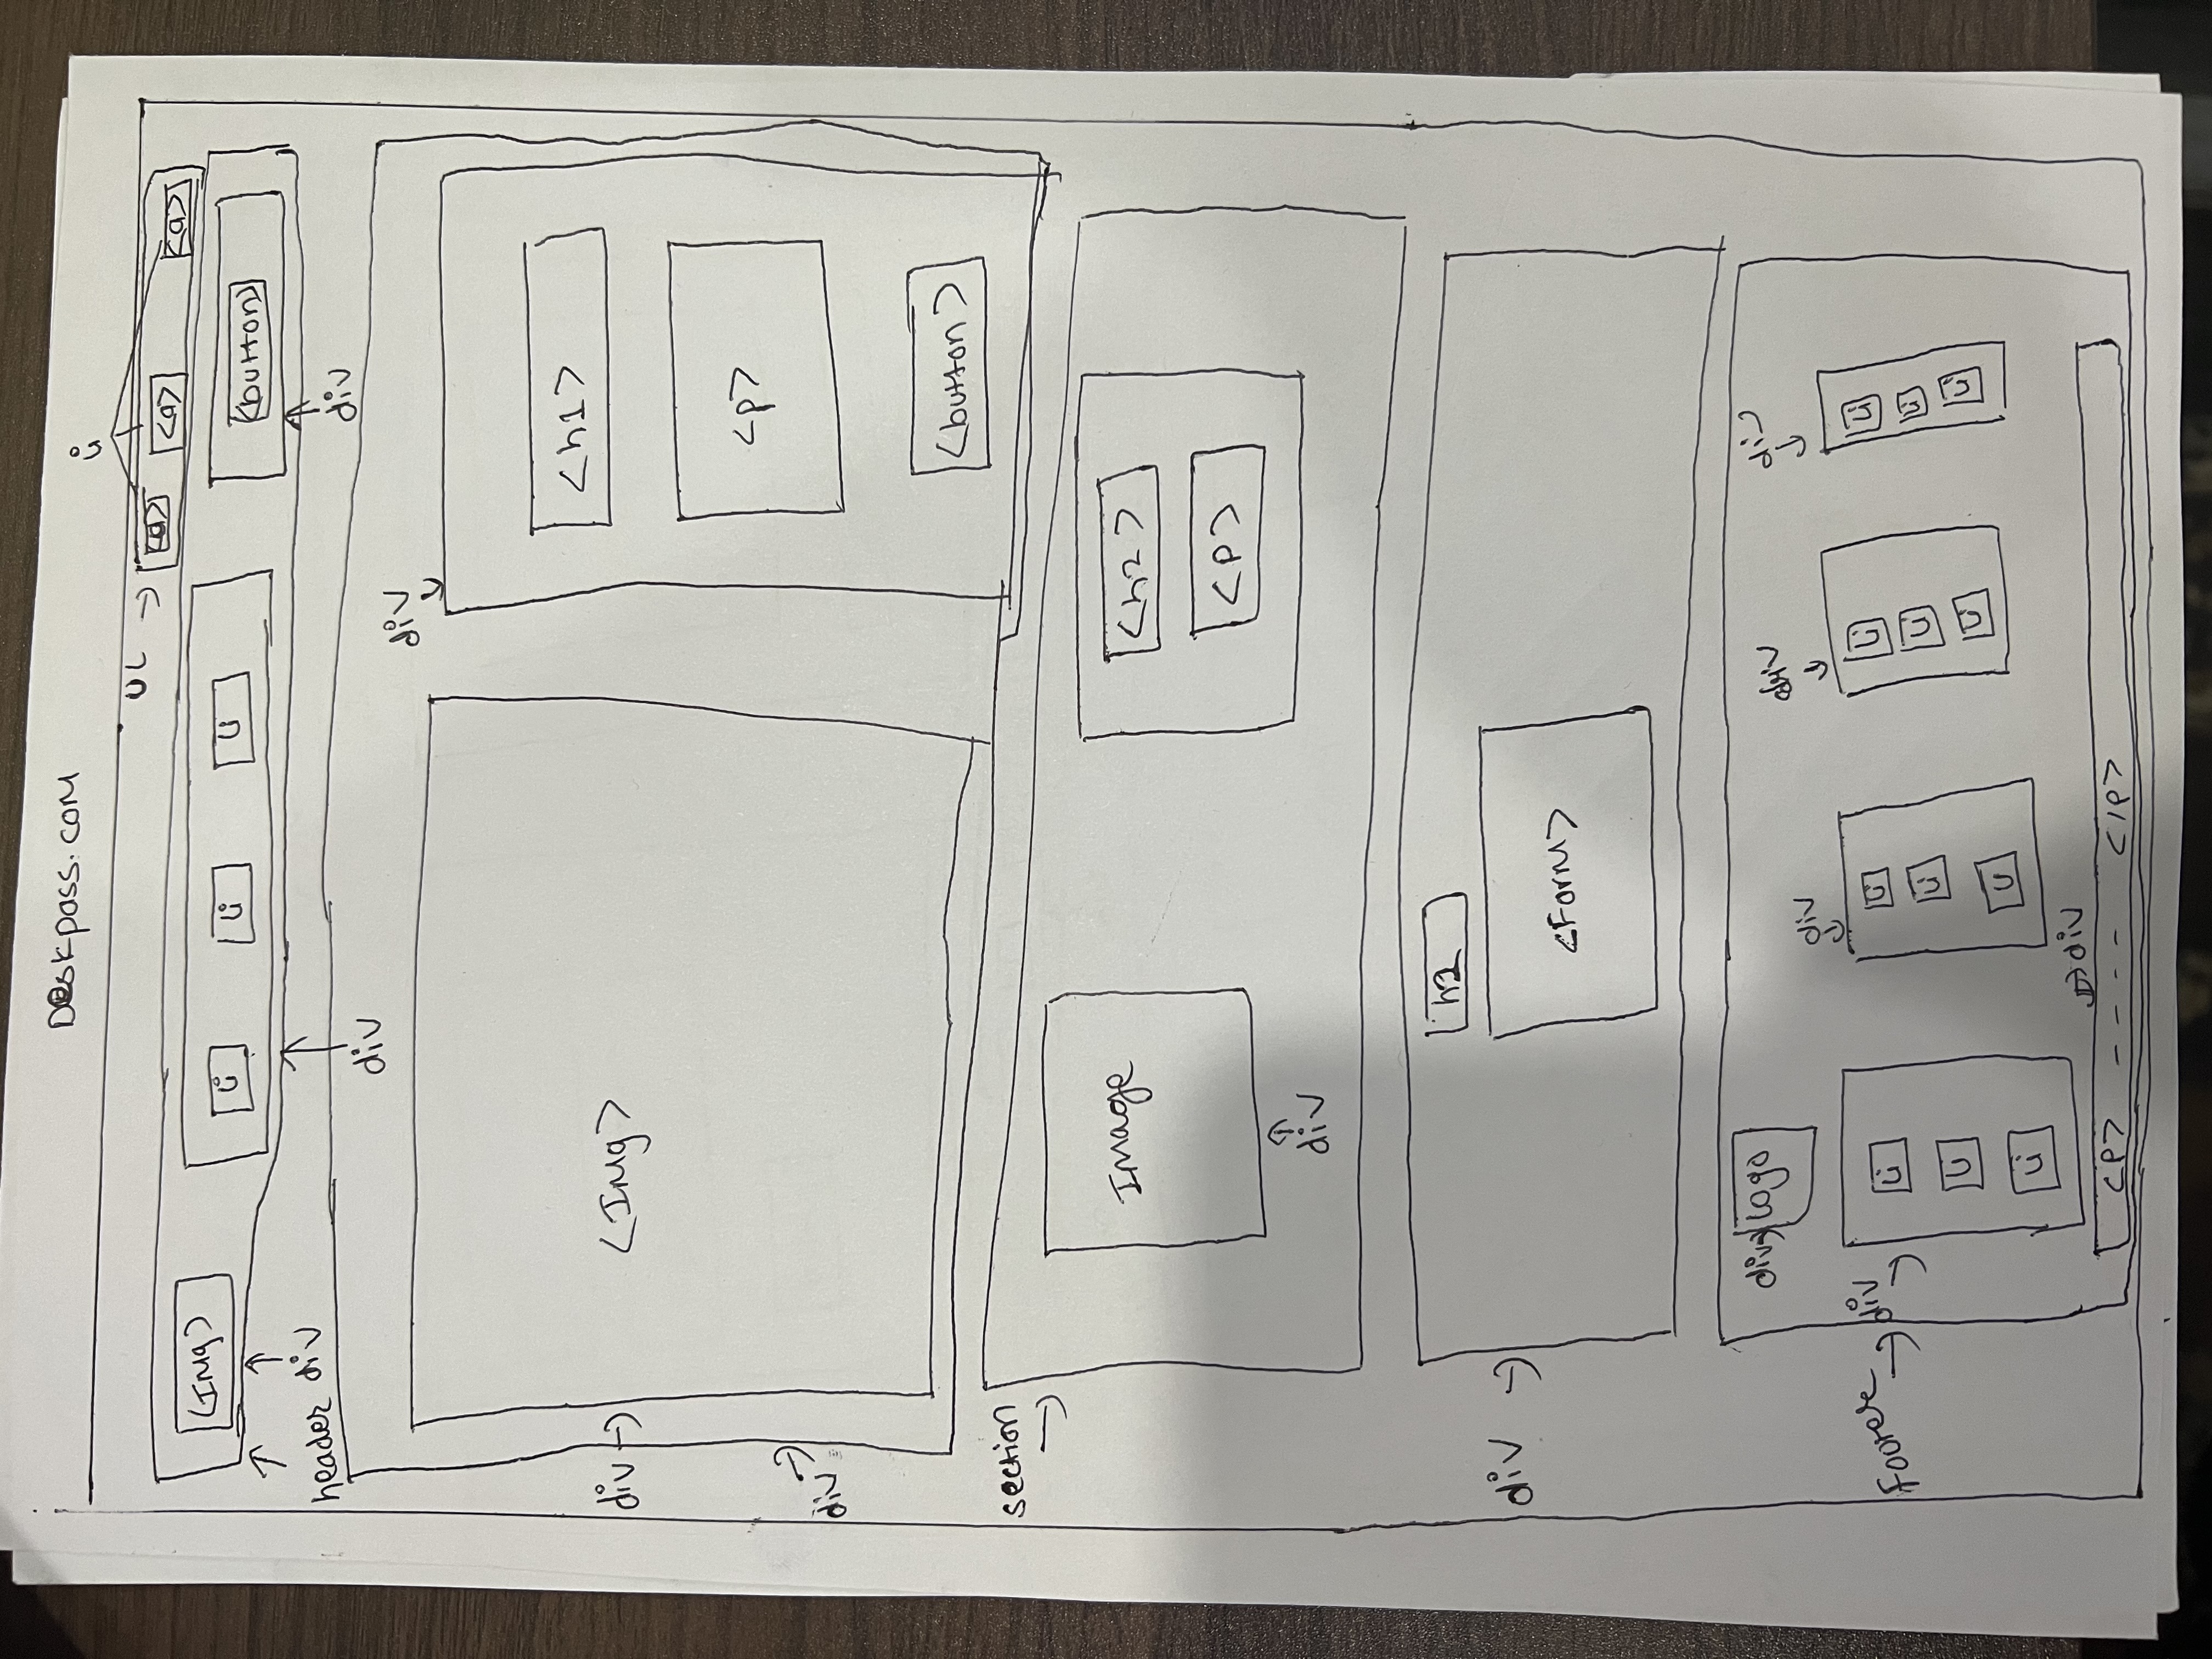 Deskpass.com
li
UL → <a> <a> <a>
<Img> li li li <button>
header div div div
div
div → <Img>
<h1>
<p>
div
<button>
section
Image <h2>
<p>
div
h2
div → <Form>
div → logo
div div div
Footer → div → li li li
li li li
li li li
li li li
→ div
<p> - - - - </p>